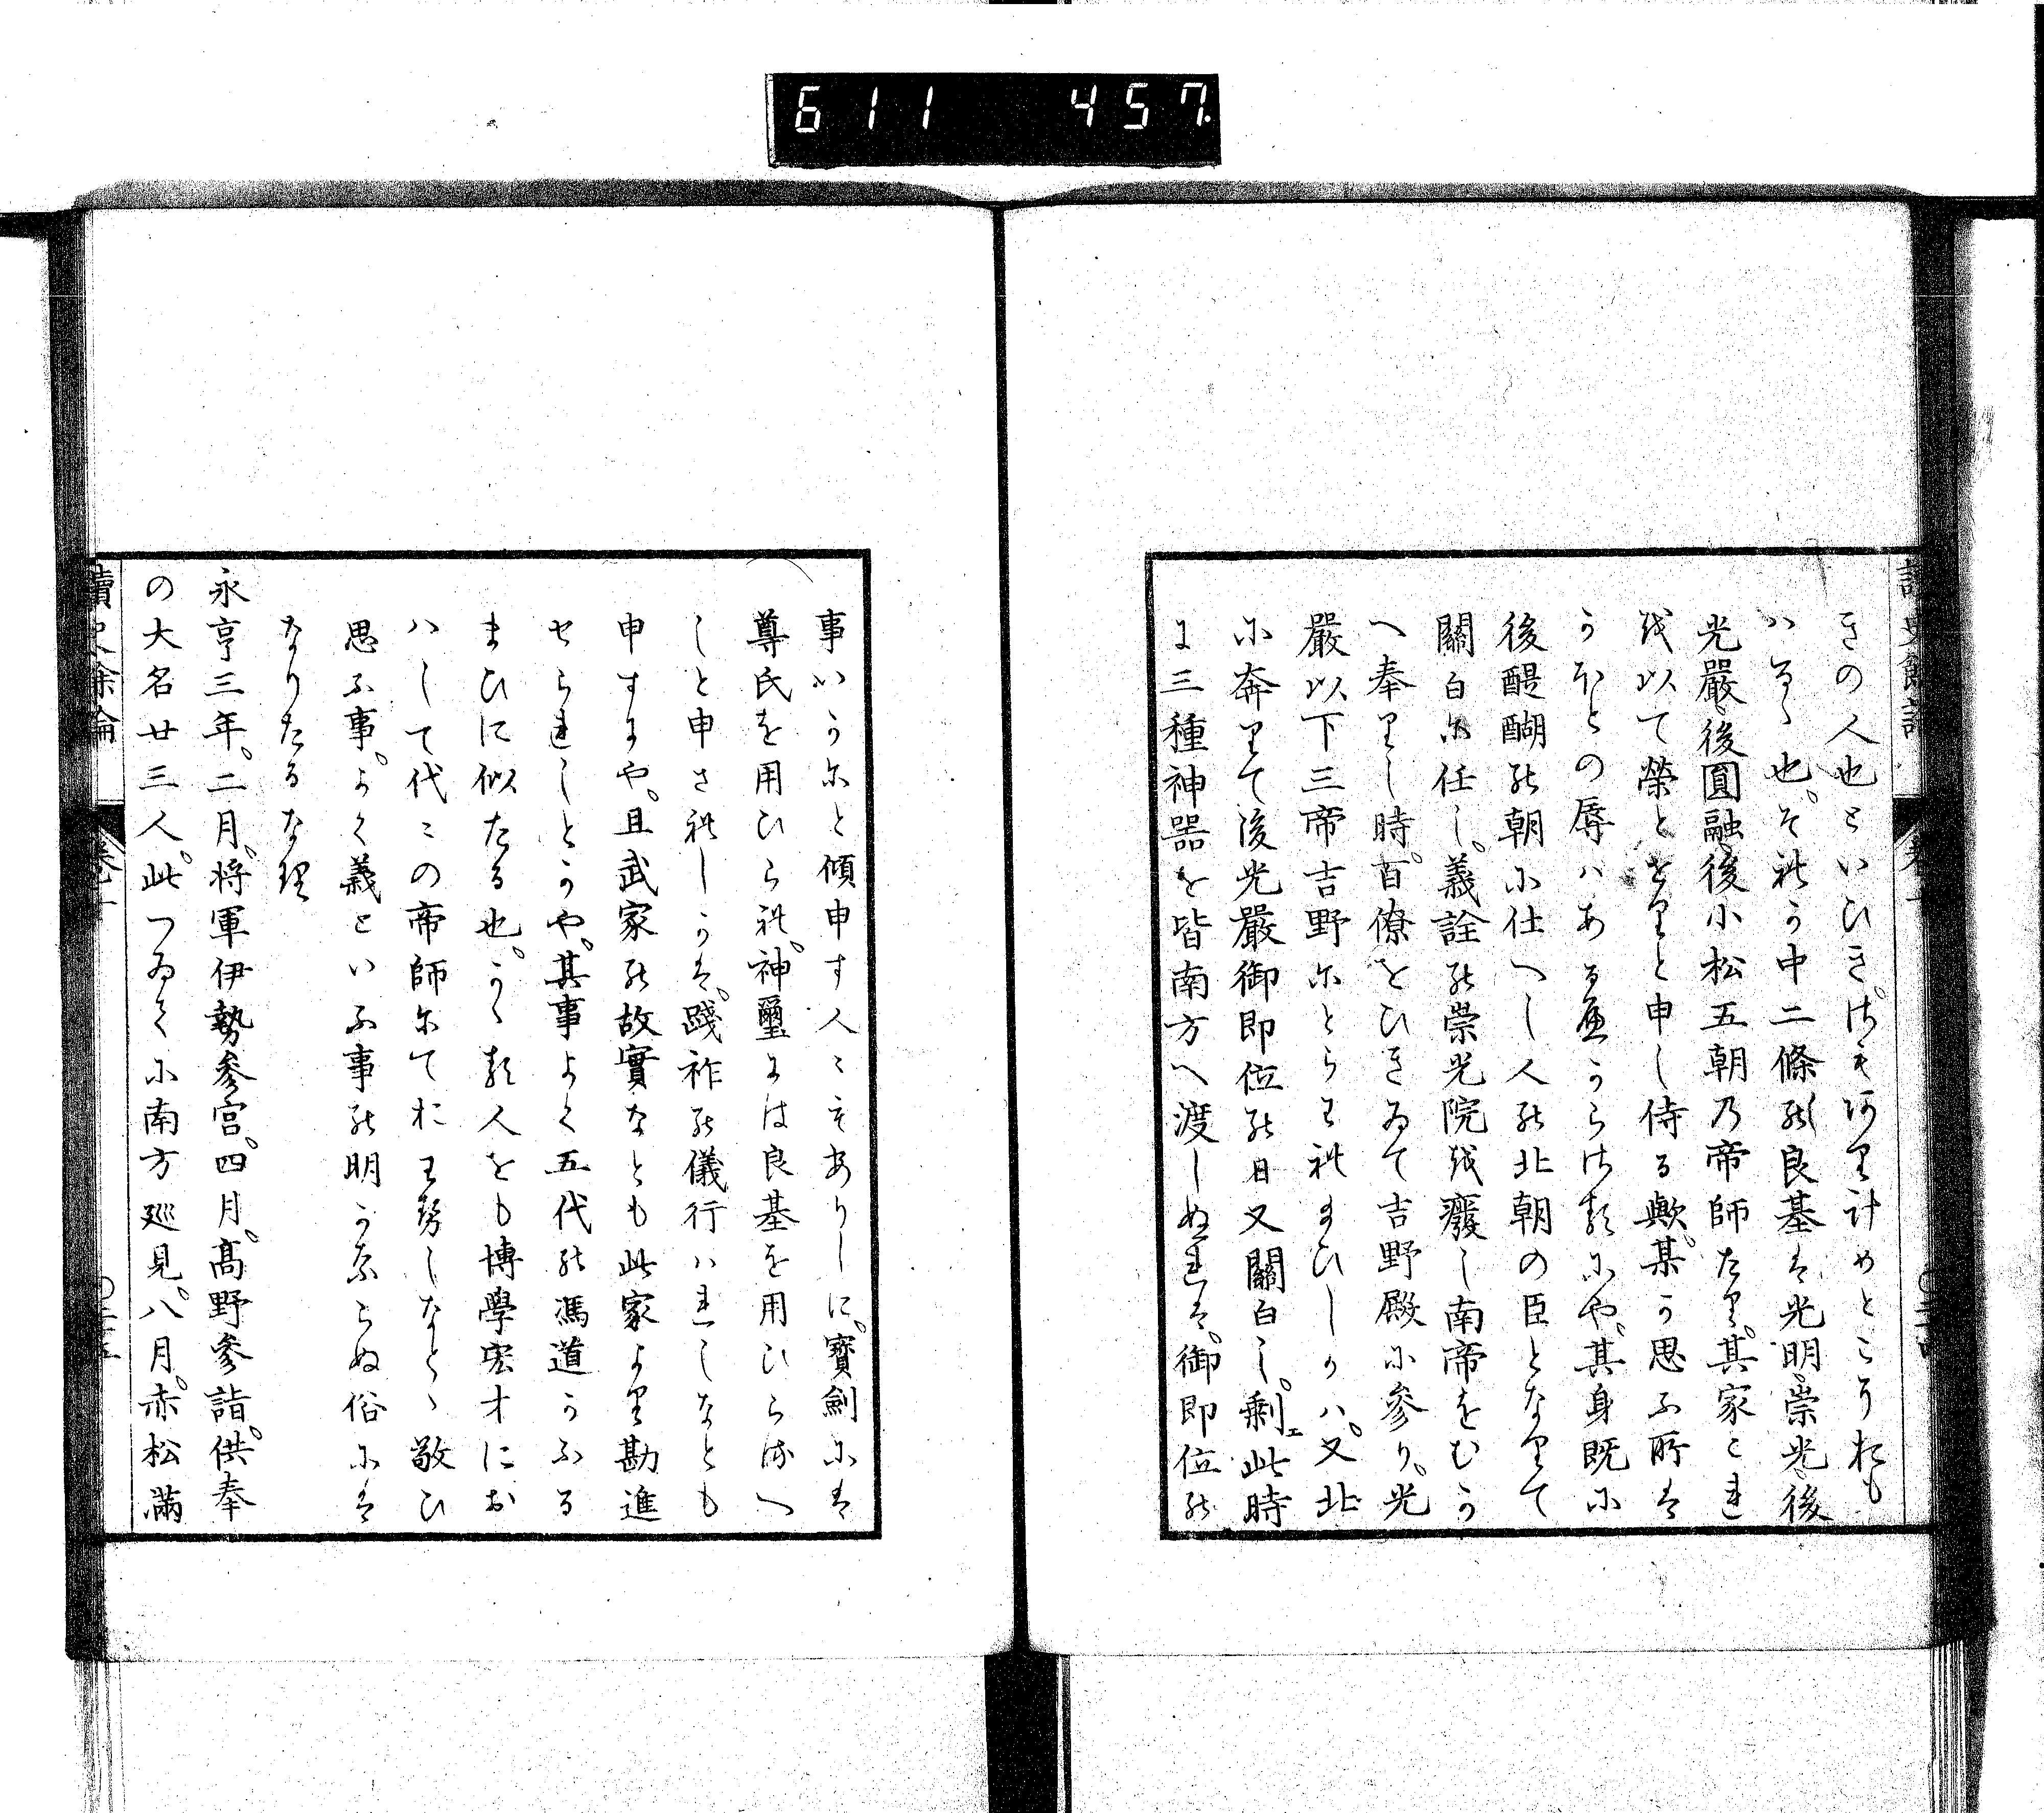 6 1 1  4 5 7.
きの人也といひき。され河里計めところおも
ハるゝ也。それか中二條の良基は光明。崇光。後
光嚴。後圓融。後小松五朝乃帝師たり。其家これ
を以て榮とせりと申し侍る歟。某か思ふ所は
かほとの辱ハあるへからさるにや。其身既に
後醍醐の朝に仕へし人の北朝の臣となりて
關白に任し。義詮の崇光院を癈し南帝をむか
へ奉りし時。百僚をひきゐて吉野殿に參り。光
嚴以下三帝吉野にとらはれまひしかハ。又北
に奔りて後光嚴御即位の日又關白し。剰エ此時
に三種神器を皆南方へ渡しぬれは。御即位の
事いかにと傾申す人こそありしに。寳劍には
尊氏を用ひられ。神璽には良基を用ひらるへ
しと申されしかは。踐祚の儀行ハれしなとも
申すにや。且武家の故實なとも此家より勘進
せられしとかや。其事よく五代の馮道かふる
まひに似たる也。かゝる人をも博學宏才にお
ハして代〻の帝師にておわせしなとゝ敬ひ
思ふ事。よく義といふ事の明かならぬ俗には
なりたるなり
永亨三年。二月。将軍伊勢參宮。四月。髙野參詣。供奉
の大名廿三人。此つゐてに南方巡見。八月。赤松滿
讀史餘論